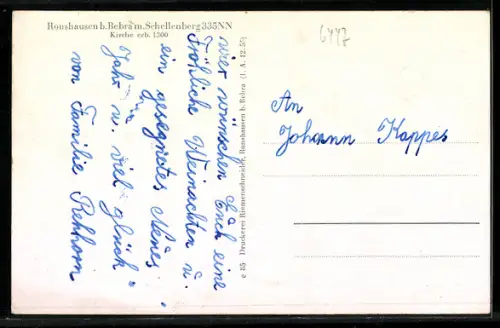 Ronshausen b. Bebra m. Schellenberg 335NN
Kirche erb. 1300
wier wünschen Euch eine
Fröhliche Weinachten u.
ein gesegnetes Neues
Jahr u. viel glück
von Familie Rehhorn
e 85 Druckerei Riemenschneider, Ronshausen b. Bebra (1. A. 12.55)
6447
An
Johann Kappes